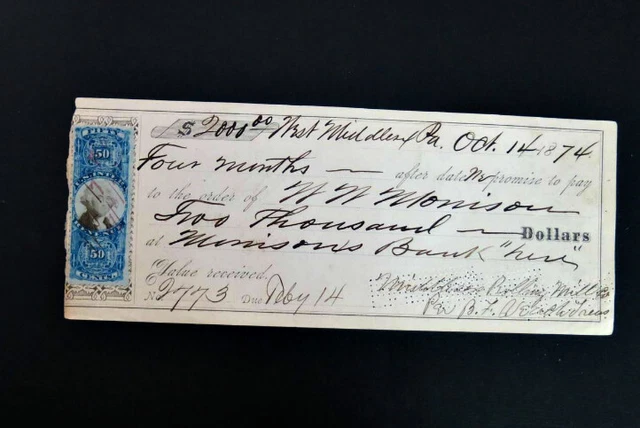 $ 2000 00 West Middlesex Pa. Oct. 14 1874
Four months — after date We promise to pay
to the order of W W Morrison
Two Thousand — Dollars
at Morrison's Bank "here"
Value received.
No 2773 Due Feby 14
Rolling Mill Co
Per B. F.
50
50